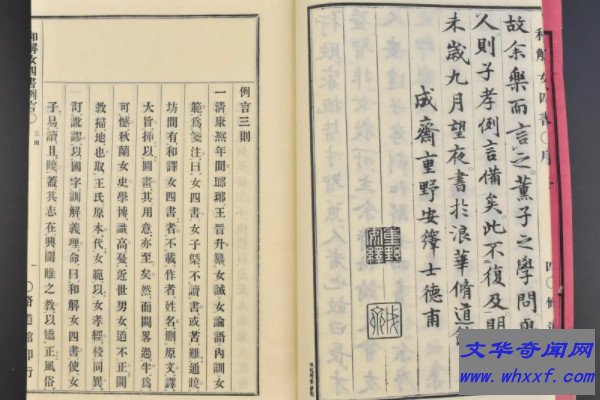 和解女四書序
四
脩道
故余樂而言之薰子之學問與
人則子孝例言備矣此不復及明
未歲九月望夜書於浪華脩道
成齋重野安繹士德甫
重野安繹
例言三則
一清康熙年間瑯琊王晉升纂女誡女論語內訓女
範爲箋注曰女四書女子槩不讀書或者難通曉
坊間有和譯女四書者不載作者姓名刪原文譯
大旨揷以圖畫其用意亦至矣然而闕畧遇半爲
可憾秋蘭女史學博識高憂近世男女道不正閨
教掃地也取王氏原本代女範以女孝經校同異
訂訛謬以國字訓解義理命曰和解女四書使女
子易讀且曉蓋其志在興關雎之教以矯正風俗
和解女四書例言
三則
一
脩道館印行
文华奇闻网
www.whxxf.com